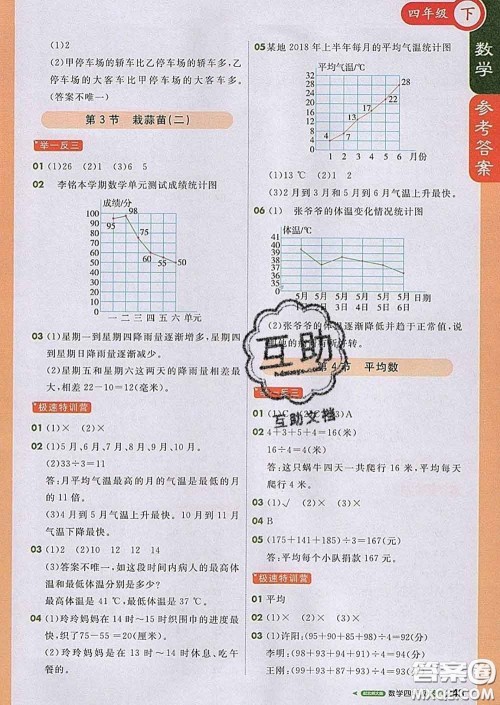 四年级 下
数学
参考答案
(1)2
(2)甲停车场的轿车比乙停车场的轿车多,乙
停车场的大客车比甲停车场的大客车多。
(答案不唯一)
第3节 栽蒜苗(二)
举一反三
01 (1)26 (2)1 (3)6 5
02 李铭本学期数学单元测试成绩统计图
成绩/分
100
90
80
70
60
50
40
30
20
10
0
95
98
75
60
55
50
一 二 三 四 五 六 单元
03 (1)星期一到星期四降雨量逐渐增多,星期四
到星期日降雨量逐渐减少。
(2)星期五和星期六这两天的降雨量相差最
大,相差 22-10=12(毫米)。
极速特训营
01 (1)× (2)×
02 (1)5月、6月、7月、8月、9月、10月。
(2)33÷3=11
答:月平均气温最高的月的气温是最低的月
的 11 倍。
(3)4月到5月气温上升最快,10月到11月气
温下降最快。
03 (1)2 (2)10 12 12 14
(3)答案不唯一,如这段时间内病人的最高体
温和最低体温分别是多少?
最高体温是 41 ℃,最低体温是 37 ℃。
04 (1)玲玲妈妈在 14 时~15 时织围巾的进度最
快,织了 75-55=20(厘米)。
(2)玲玲的妈妈可能在 12 时~13 时去吃
午餐的。
05 某地 2018 年上半年每月的平均气温统计图
平均气温/℃
30
25
20
15
10
5
0
4
7
13
17
23
28
1 2 3 4 5 6 月份
(1)13 ℃ (2)1 2
(3)2月到3月和4月到5月气温上升最快。
06 (1) 张爷爷的体温变化情况统计图
体温/℃
41
40
39
38
37
36
35
0
5月 5月 5月 5月 5月 5月 日期
(2)张爷爷的体温逐渐降低并趋于正常值,说
互助
互助文档
第4节 平均数
01 (1)C (3)A
02 4+3+5+4=16(米)
16÷4=4(米)
答:这只蜗牛四天一共爬行 16 米,平均每天
爬行 4 米。
03 (1)√ (2)× (3)×
04 B
05 (175+141+185)÷3=167(元)
答:平均每个小队捐款 167 元。
极速特训营
01 平均
02 (1)× (2)× (3)×
03 (1)许阳:(95+90+85+98)÷4=92(分)
李明:(98+92+93+85)÷4=92(分)
王刚:(97+93+90+88)÷4=92(分)
数学四
答案圈